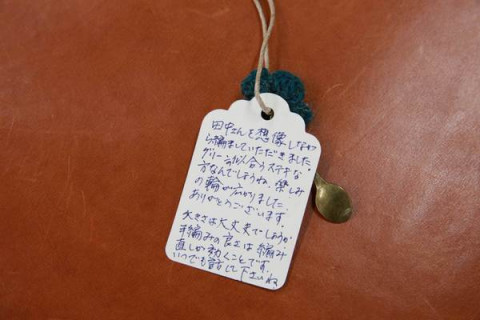 田中さんを想像しなが
ら編ませていただきました。
グリーンが似合うステキな
方なんでしょうね。楽しみ
の輪が広がりました
ありがとうございます。
大きさは大丈夫でしょうか。
手編みの良さは編み
直しが効くことです。
いつでも話して下さいね